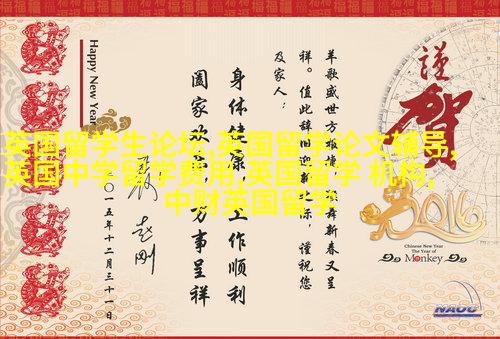 謹
賀
2016
Chinese New Year
The Year of
Monkey
NAOC
羊歌盛世方 舞新春又呈
祥。值此辞旧迎新之际,谨祝您
及家人:
身体健康,工作顺利
阖家欢乐,万事呈祥
〇一五年十二月三十一日
Happy New Year
英国留学生论坛,英国留学论文辅导,
英国中学留学费用,英国留学 机构,
中财英国留学